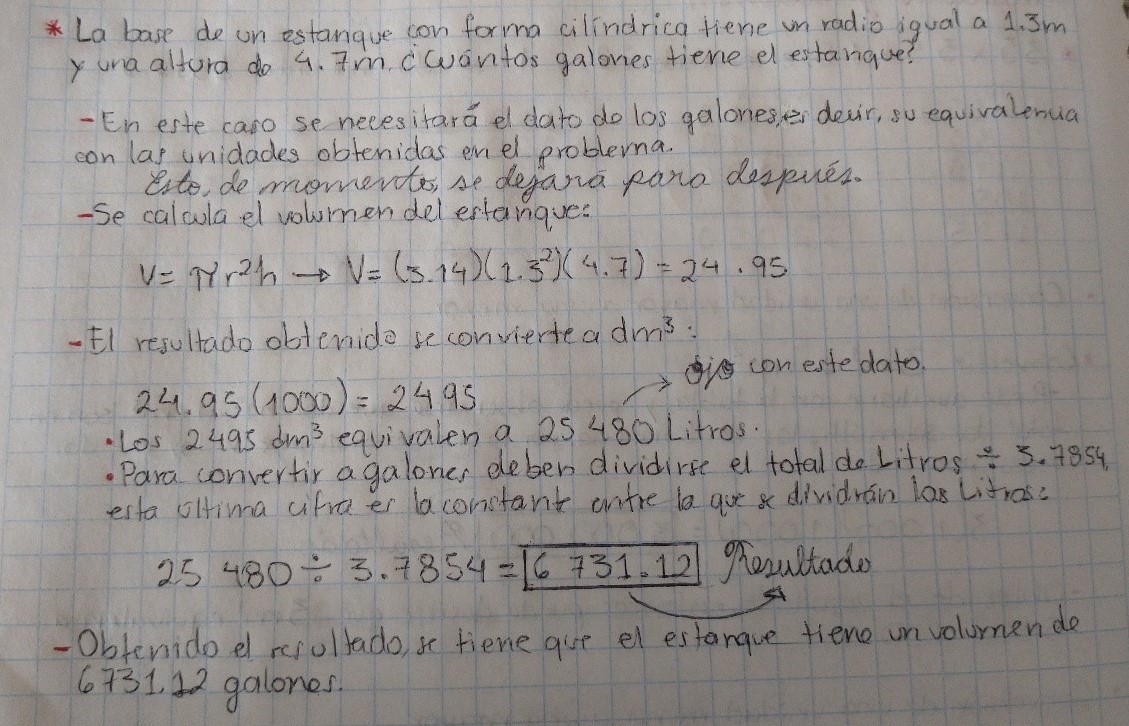 * La base de un estanque con forma cilíndrica tiene un radio igual a 1.3m
y una altura do 4.7m. ¿Cuántos galones tiene el estanque?
- En este caso se necesitará el dato do los galones, es decir, su equivalencia
con las unidades obtenidas en el problema.
Esto, de momento, se dejará para después.
- Se calcula el volumen del estanque:
V = πr²h → V = (3.14)(1.3²)(4.7) = 24.95
- El resultado obtenido se convierte a dm³:
ojo con este dato.
24.95 (1000) = 2495
• Los 2495 dm³ equivalen a 25 480 Litros.
• Para convertir a galones deben dividirse el total de Litros ÷ 3.7854,
esta última cifra es la constante entre la que se dividrán las Litros:
25 480 ÷ 3.7854 = 6 731.12 Resultado
- Obtenido el resultado, se tiene que el estanque tiene un volumen de
6731.12 galones.